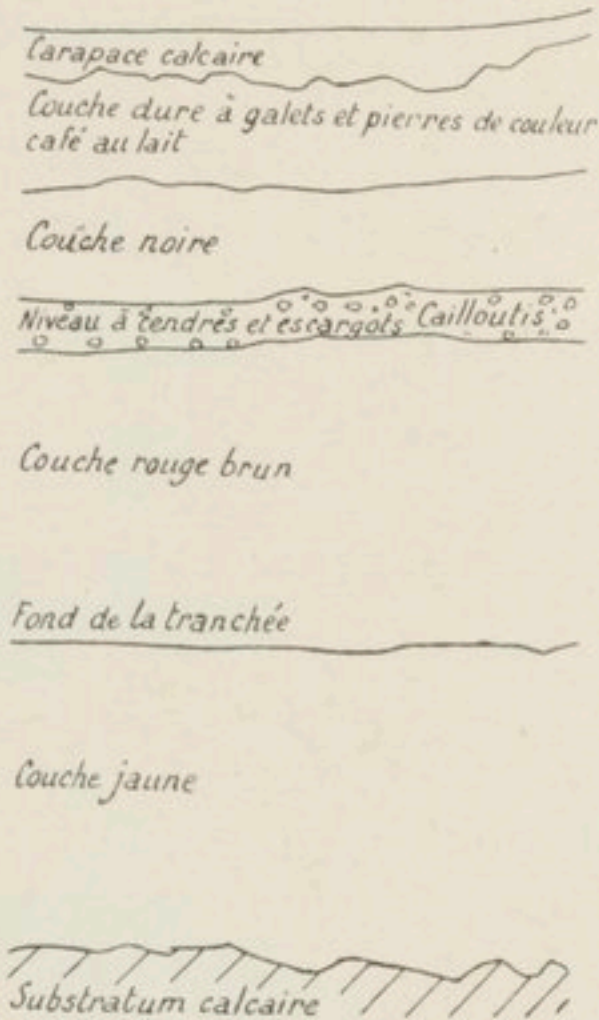 Carapace calcaire
Couche dure à galets et pierres de couleur
café au lait
Couche noire
Niveau à cendres et escargots Cailloutis
Couche rouge brun
Fond de la tranchée
Couche jaune
Substratum calcaire